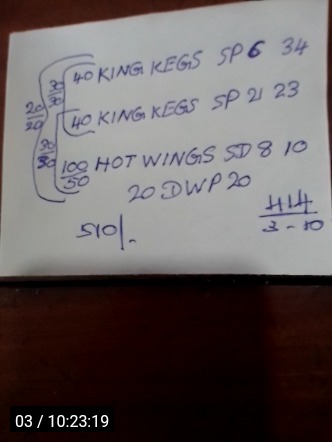 40 KING KEGS SP 6 34
30/30
20/20
40 KING KEGS SP 21 23
30/30
100/50 HOT WINGS SD 8 10
20 DWP 20
510/-
414
3-10
03 / 10:23:19